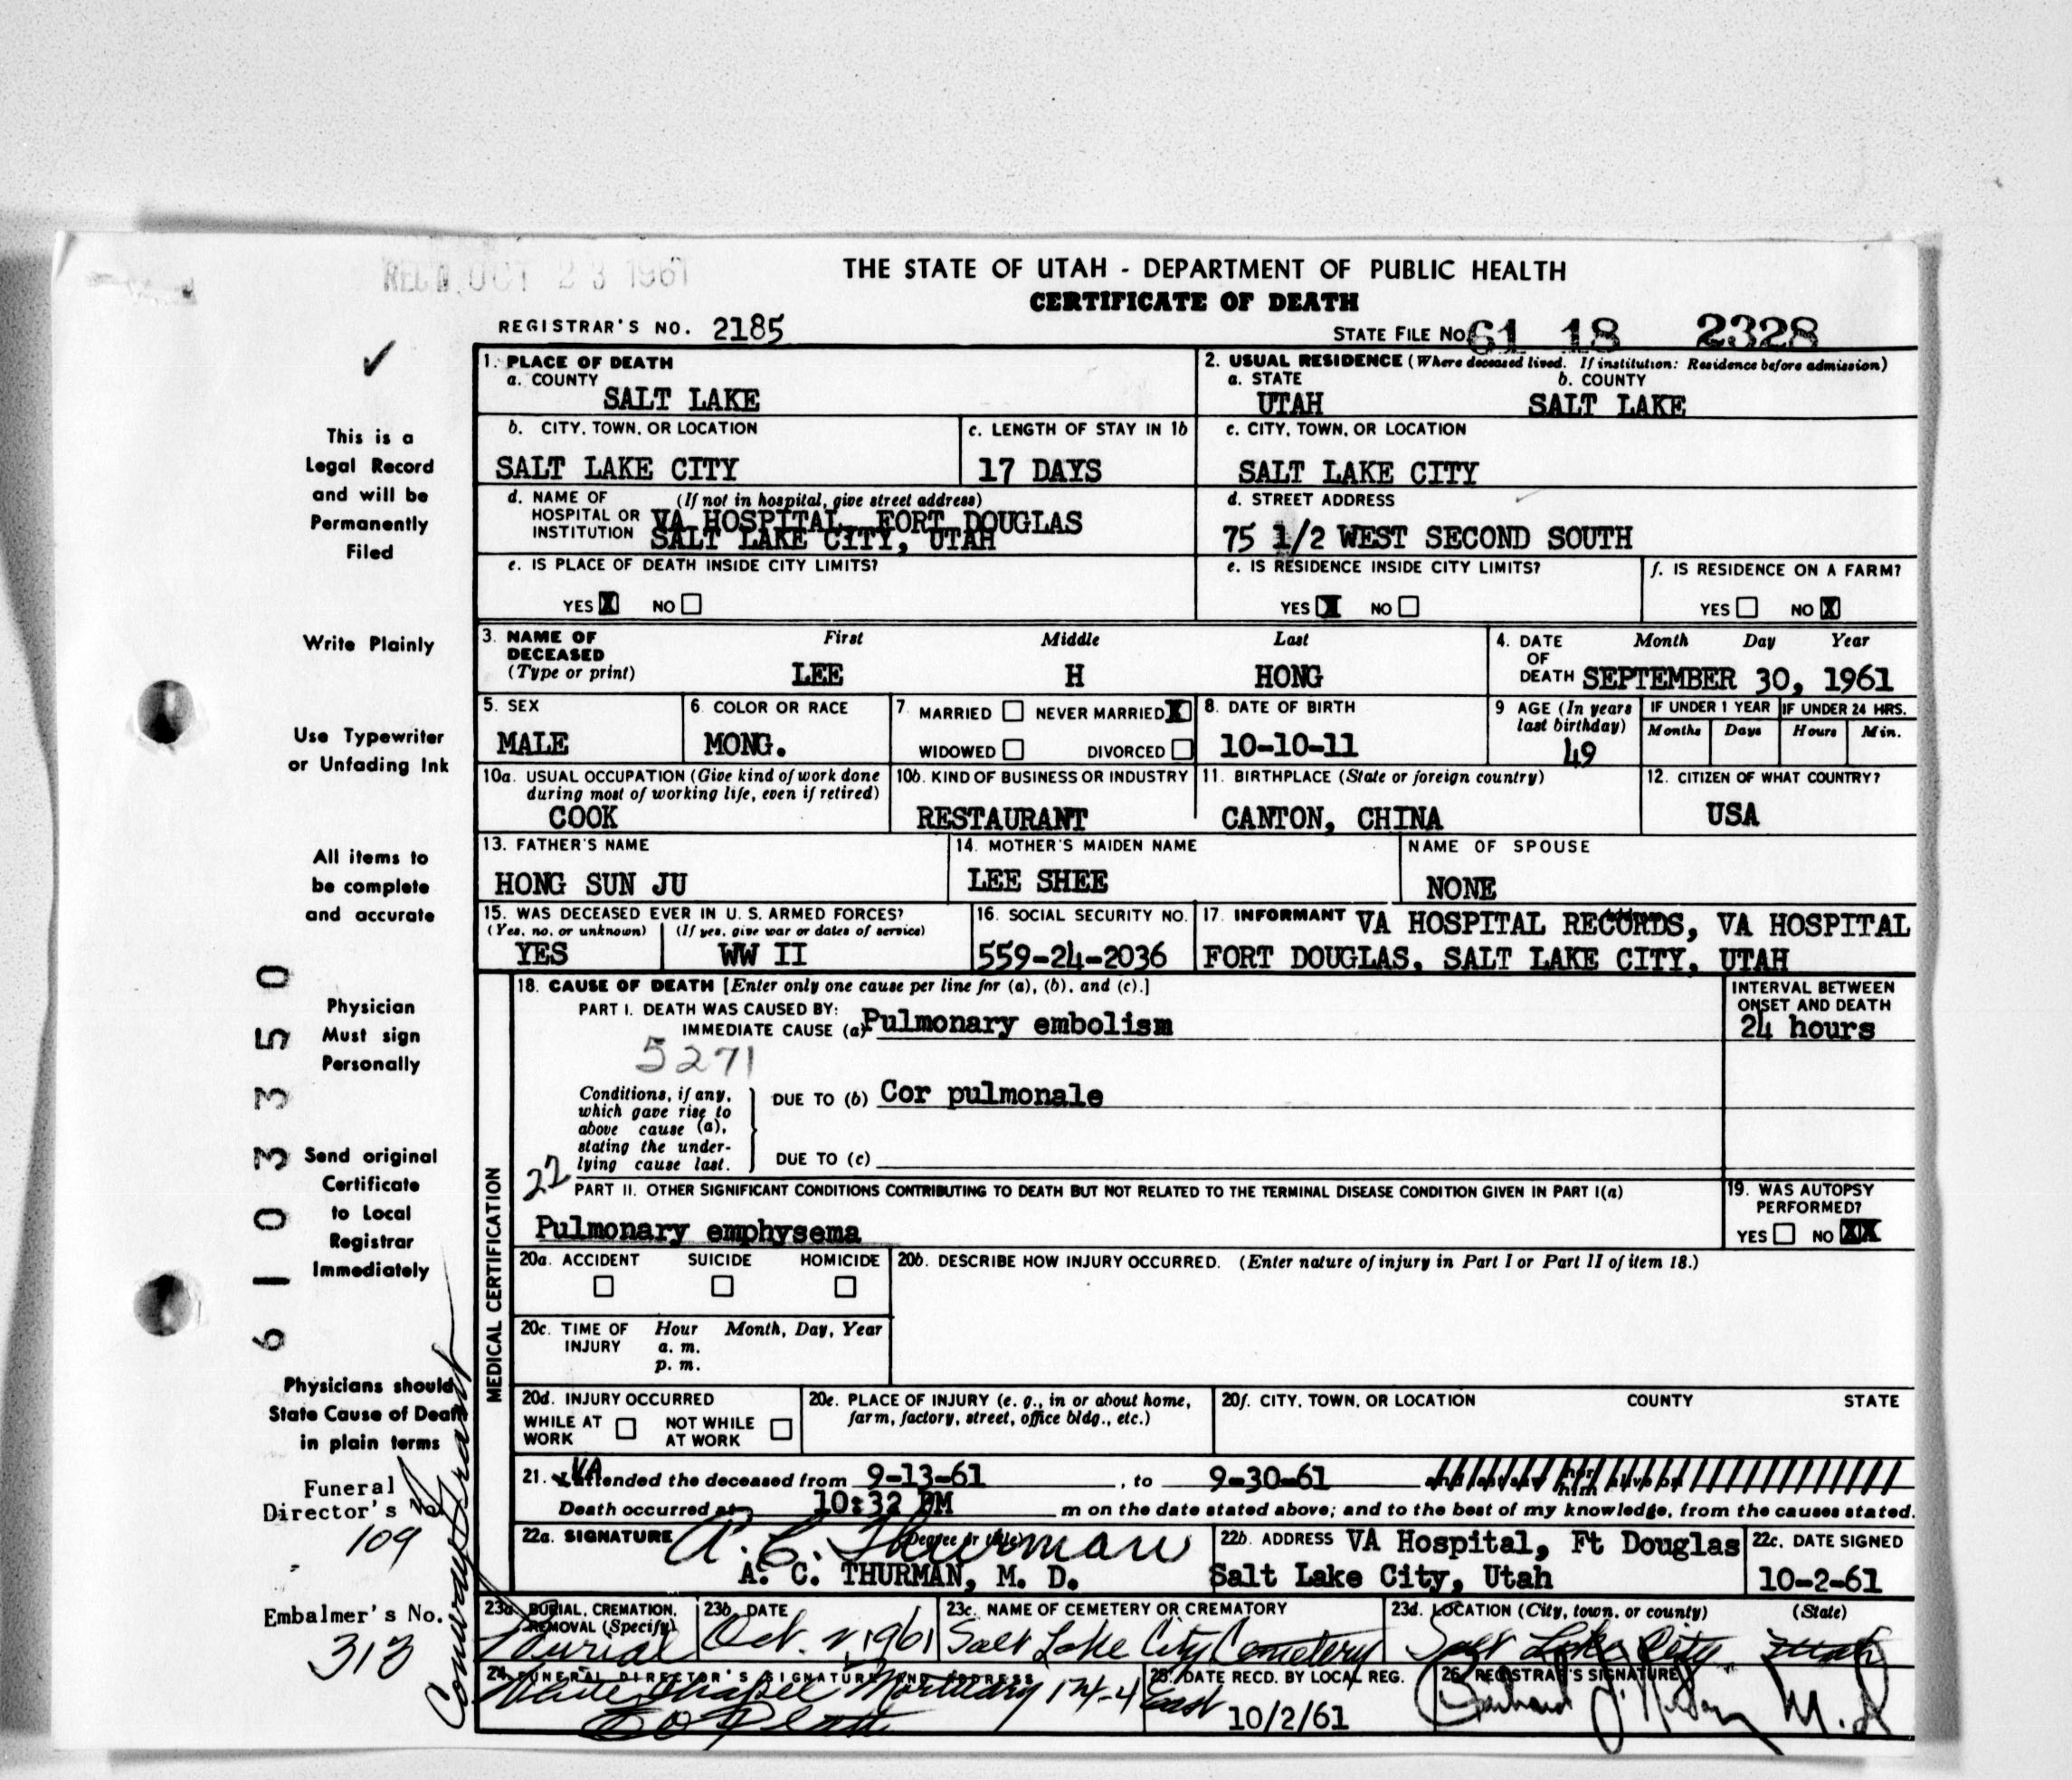 REC'D. OCT 23 1961
THE STATE OF UTAH - DEPARTMENT OF PUBLIC HEALTH
CERTIFICATE OF DEATH
REGISTRAR'S NO. 2185
STATE FILE NO. 61 18 2328
✓
This is a
Legal Record
and will be
Permanently
Filed
Write Plainly
Use Typewriter
or Unfading Ink
All items to
be complete
and accurate
Physician
Must sign
Personally
Send original
Certificate
to Local
Registrar
Immediately
Physicians should
State Cause of Death
in plain terms
Funeral
Director's No.
109
Embalmer's No.
313
61033350
1. PLACE OF DEATH
a. COUNTY
SALT LAKE
2. USUAL RESIDENCE (Where deceased lived. If institution: Residence before admission)
a. STATE b. COUNTY
UTAH SALT LAKE
b. CITY, TOWN, OR LOCATION
SALT LAKE CITY
c. LENGTH OF STAY IN 1b
17 DAYS
c. CITY, TOWN, OR LOCATION
SALT LAKE CITY
d. NAME OF (If not in hospital, give street address)
HOSPITAL OR VA HOSPITAL, FORT DOUGLAS
INSTITUTION SALT LAKE CITY, UTAH
d. STREET ADDRESS
75 1/2 WEST SECOND SOUTH
e. IS PLACE OF DEATH INSIDE CITY LIMITS?
YES X NO
e. IS RESIDENCE INSIDE CITY LIMITS?
YES X NO
f. IS RESIDENCE ON A FARM?
YES NO X
3. NAME OF First Middle Last
DECEASED
(Type or print) LEE H HONG
4. DATE Month Day Year
OF
DEATH SEPTEMBER 30, 1961
5. SEX
MALE
6. COLOR OR RACE
MONG.
7. MARRIED NEVER MARRIED X
WIDOWED DIVORCED
8. DATE OF BIRTH
10-10-11
9 AGE (In years
last birthday)
49
IF UNDER 1 YEAR IF UNDER 24 HRS.
Months Days Hours Min.
10a. USUAL OCCUPATION (Give kind of work done
during most of working life, even if retired)
COOK
10b. KIND OF BUSINESS OR INDUSTRY
RESTAURANT
11. BIRTHPLACE (State or foreign country)
CANTON, CHINA
12. CITIZEN OF WHAT COUNTRY?
USA
13. FATHER'S NAME
HONG SUN JU
14. MOTHER'S MAIDEN NAME
LEE SHEE
NAME OF SPOUSE
NONE
15. WAS DECEASED EVER IN U. S. ARMED FORCES?
(Yes, no, or unknown) (If yes, give war or dates of service)
YES WW II
16. SOCIAL SECURITY NO.
559-24-2036
17. INFORMANT VA HOSPITAL RECORDS, VA HOSPITAL
FORT DOUGLAS, SALT LAKE CITY, UTAH
MEDICAL CERTIFICATION
18. CAUSE OF DEATH [Enter only one cause per line for (a), (b), and (c).]
PART I. DEATH WAS CAUSED BY:
IMMEDIATE CAUSE (a) Pulmonary embolism
INTERVAL BETWEEN
ONSET AND DEATH
24 hours
5271
Conditions, if any,
which gave rise to
above cause (a),
stating the under-
lying cause last.
DUE TO (b) Cor pulmonale
DUE TO (c)
22
PART II. OTHER SIGNIFICANT CONDITIONS CONTRIBUTING TO DEATH BUT NOT RELATED TO THE TERMINAL DISEASE CONDITION GIVEN IN PART I(a)
Pulmonary emphysema
19. WAS AUTOPSY
PERFORMED?
YES NO XX
20a. ACCIDENT SUICIDE HOMICIDE
20b. DESCRIBE HOW INJURY OCCURRED. (Enter nature of injury in Part I or Part II of item 18.)
20c. TIME OF Hour Month, Day, Year
INJURY a. m.
p. m.
20d. INJURY OCCURRED
WHILE AT WORK NOT WHILE AT WORK
20e. PLACE OF INJURY (e. g., in or about home,
farm, factory, street, office bldg., etc.)
20f. CITY, TOWN, OR LOCATION COUNTY STATE
21. VA attended the deceased from 9-13-61, to 9-30-61
Death occurred at 10:32 PM m on the date stated above; and to the best of my knowledge, from the causes stated.
22a. SIGNATURE A. C. Thurman (Degree or title)
A. C. THURMAN, M. D.
22b. ADDRESS VA Hospital, Ft Douglas
Salt Lake City, Utah
22c. DATE SIGNED
10-2-61
23a. BURIAL, CREMATION,
REMOVAL (Specify)
Burial
23b. DATE
Oct. 2, 1961
23c. NAME OF CEMETERY OR CREMATORY
Salt Lake City Cemetery
23d. LOCATION (City, town, or county) (State)
Salt Lake City, Utah
24. FUNERAL DIRECTOR'S SIGNATURE AND ADDRESS
White Chapel Mortuary 124-4 East
25. DATE RECD. BY LOCAL REG.
10/2/61
26. REGISTRAR'S SIGNATURE
M.D.